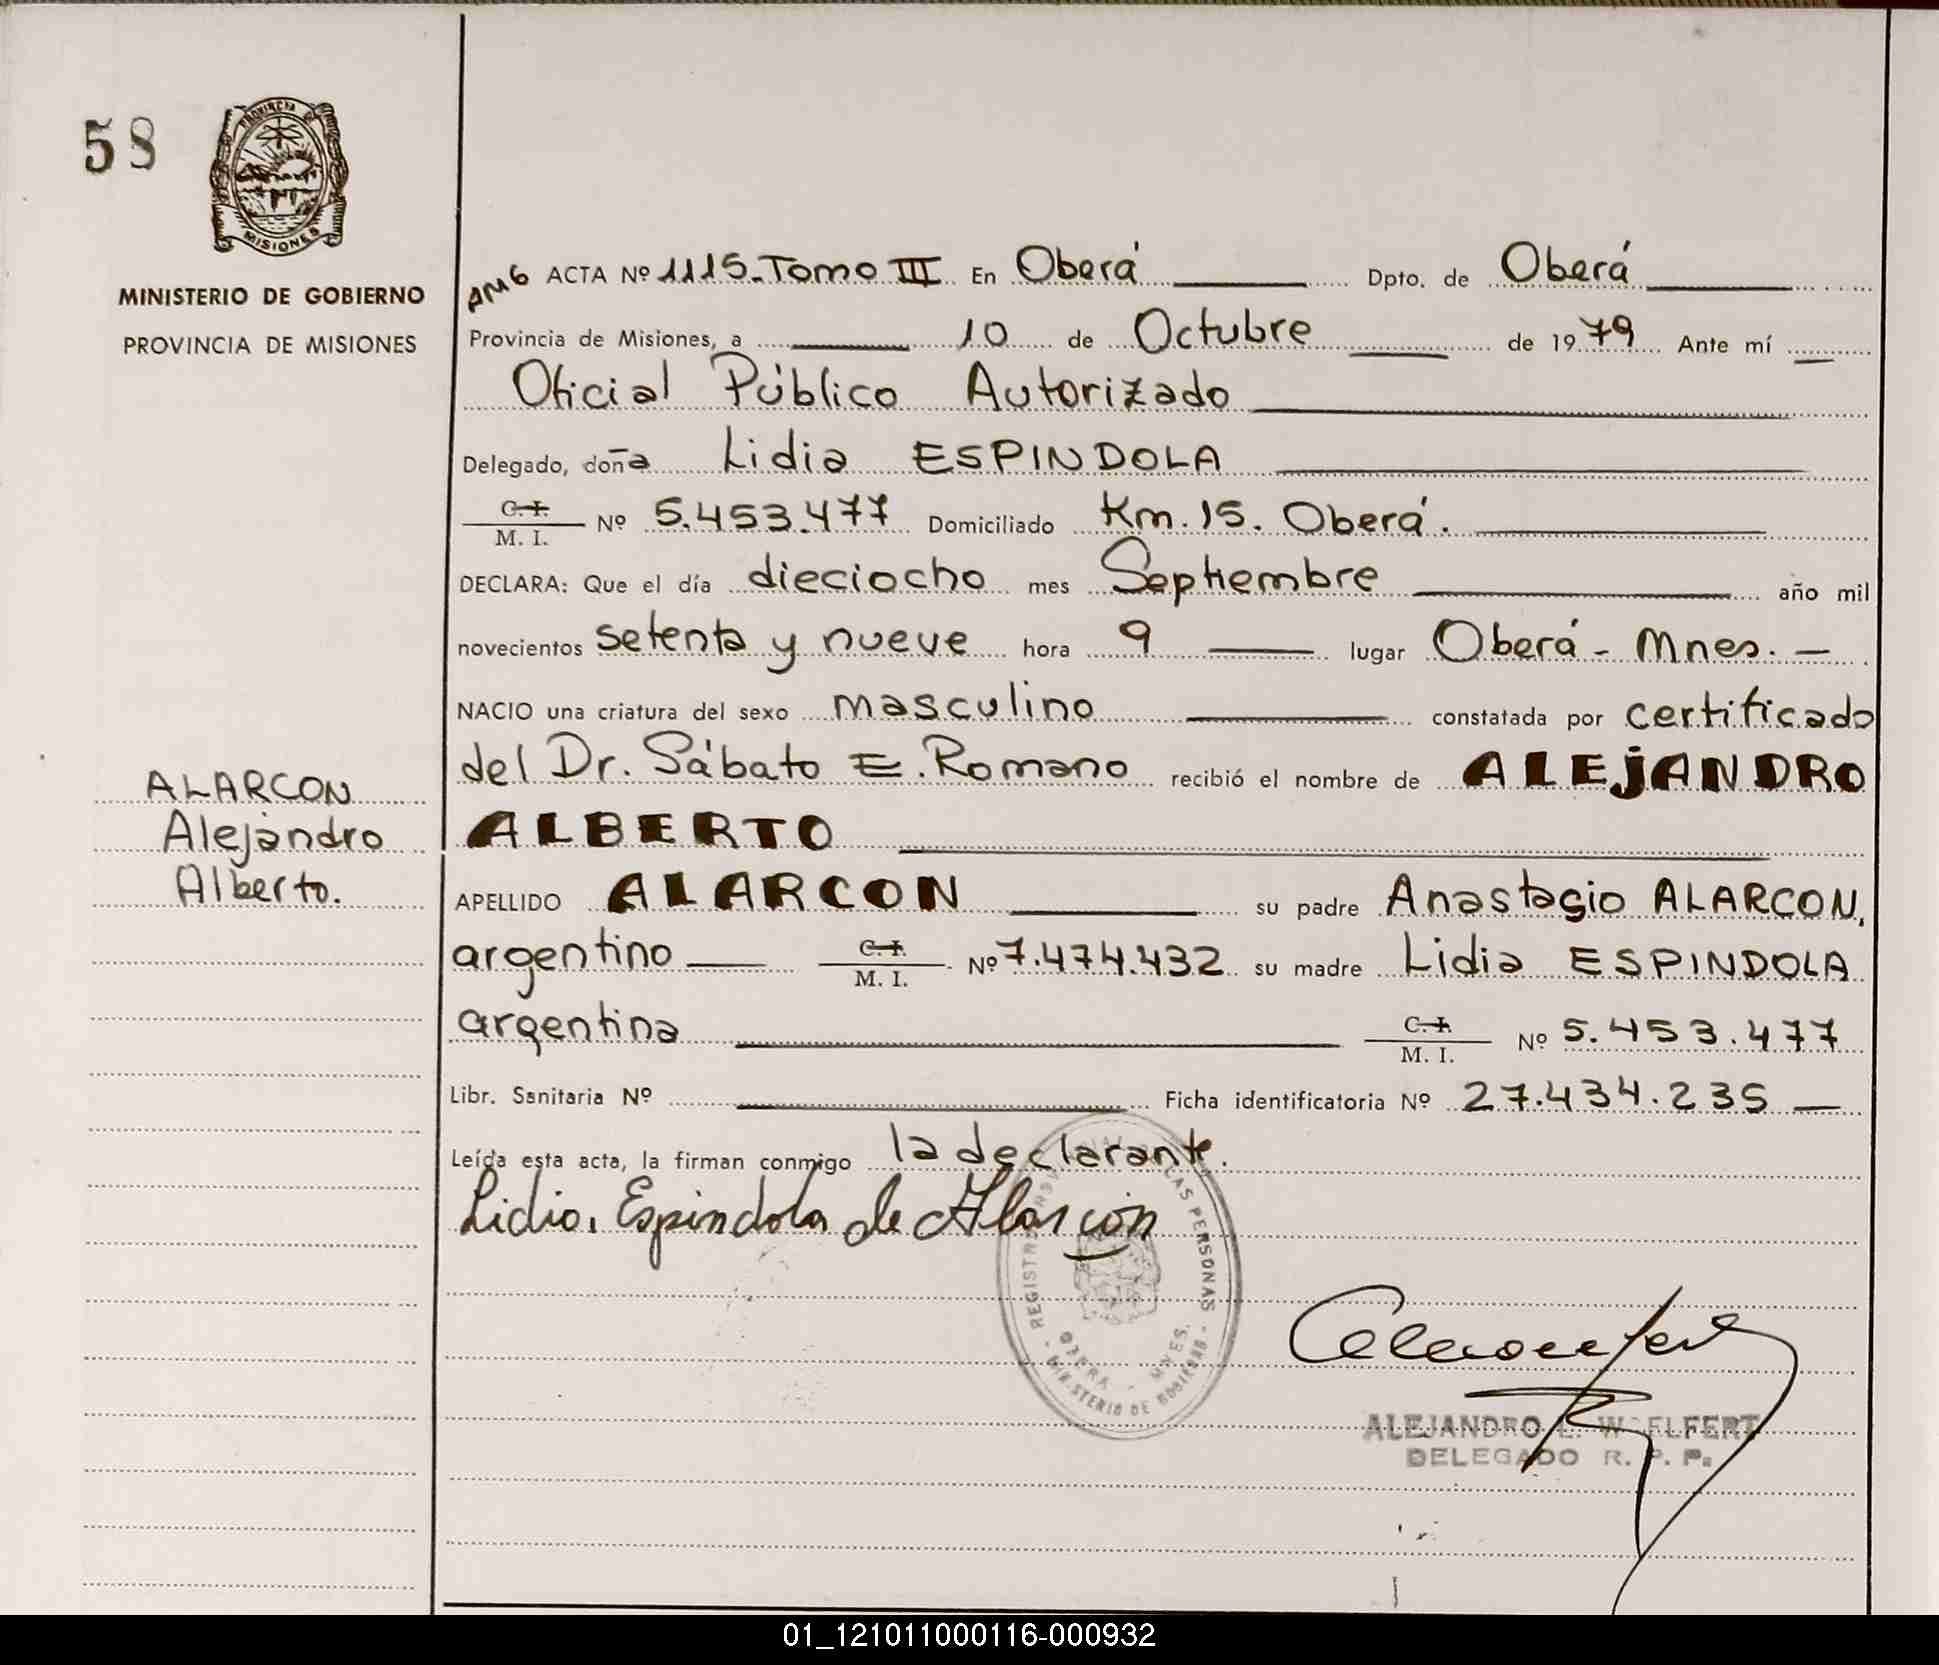 58
PROVINCIA DE
MISIONES
MINISTERIO DE GOBIERNO
PROVINCIA DE MISIONES
ALARCON
Alejandro
Alberto.
AMG ACTA Nº 1115.-Tomo III En Oberá Dpto. de Oberá
Provincia de Misiones, a 10 de Octubre de 1979 Ante mí
Oficial Público Autorizado
Delegado, doña Lidia ESPINDOLA
C. I.
M. I. Nº 5.453.477 Domiciliado Km. 15. Oberá.
DECLARA: Que el día dieciocho mes Septiembre año mil
novecientos setenta y nueve hora 9 lugar Oberá - Mnes. —
NACIO una criatura del sexo masculino constatada por certificado
del Dr. Sábato E. Romano recibió el nombre de ALEJANDRO
ALBERTO
APELLIDO ALARCON su padre Anastasio ALARCON,
argentino C. I. / M. I. Nº 7.474.432 su madre Lidia ESPINDOLA
argentina C. I. / M. I. Nº 5.453.477
Libr. Sanitaria Nº Ficha identificatoria Nº 27.434.235 —
Leída esta acta, la firman conmigo la declarante.
Lidia Espindola de Alarcón
REGISTRO PROVINCIAL DE LAS PERSONAS
OBERA - MNES.
MINISTERIO DE GOBIERNO
ALEJANDRO E. WOELFERT
DELEGADO R. P. P.
01_121011000116-000932